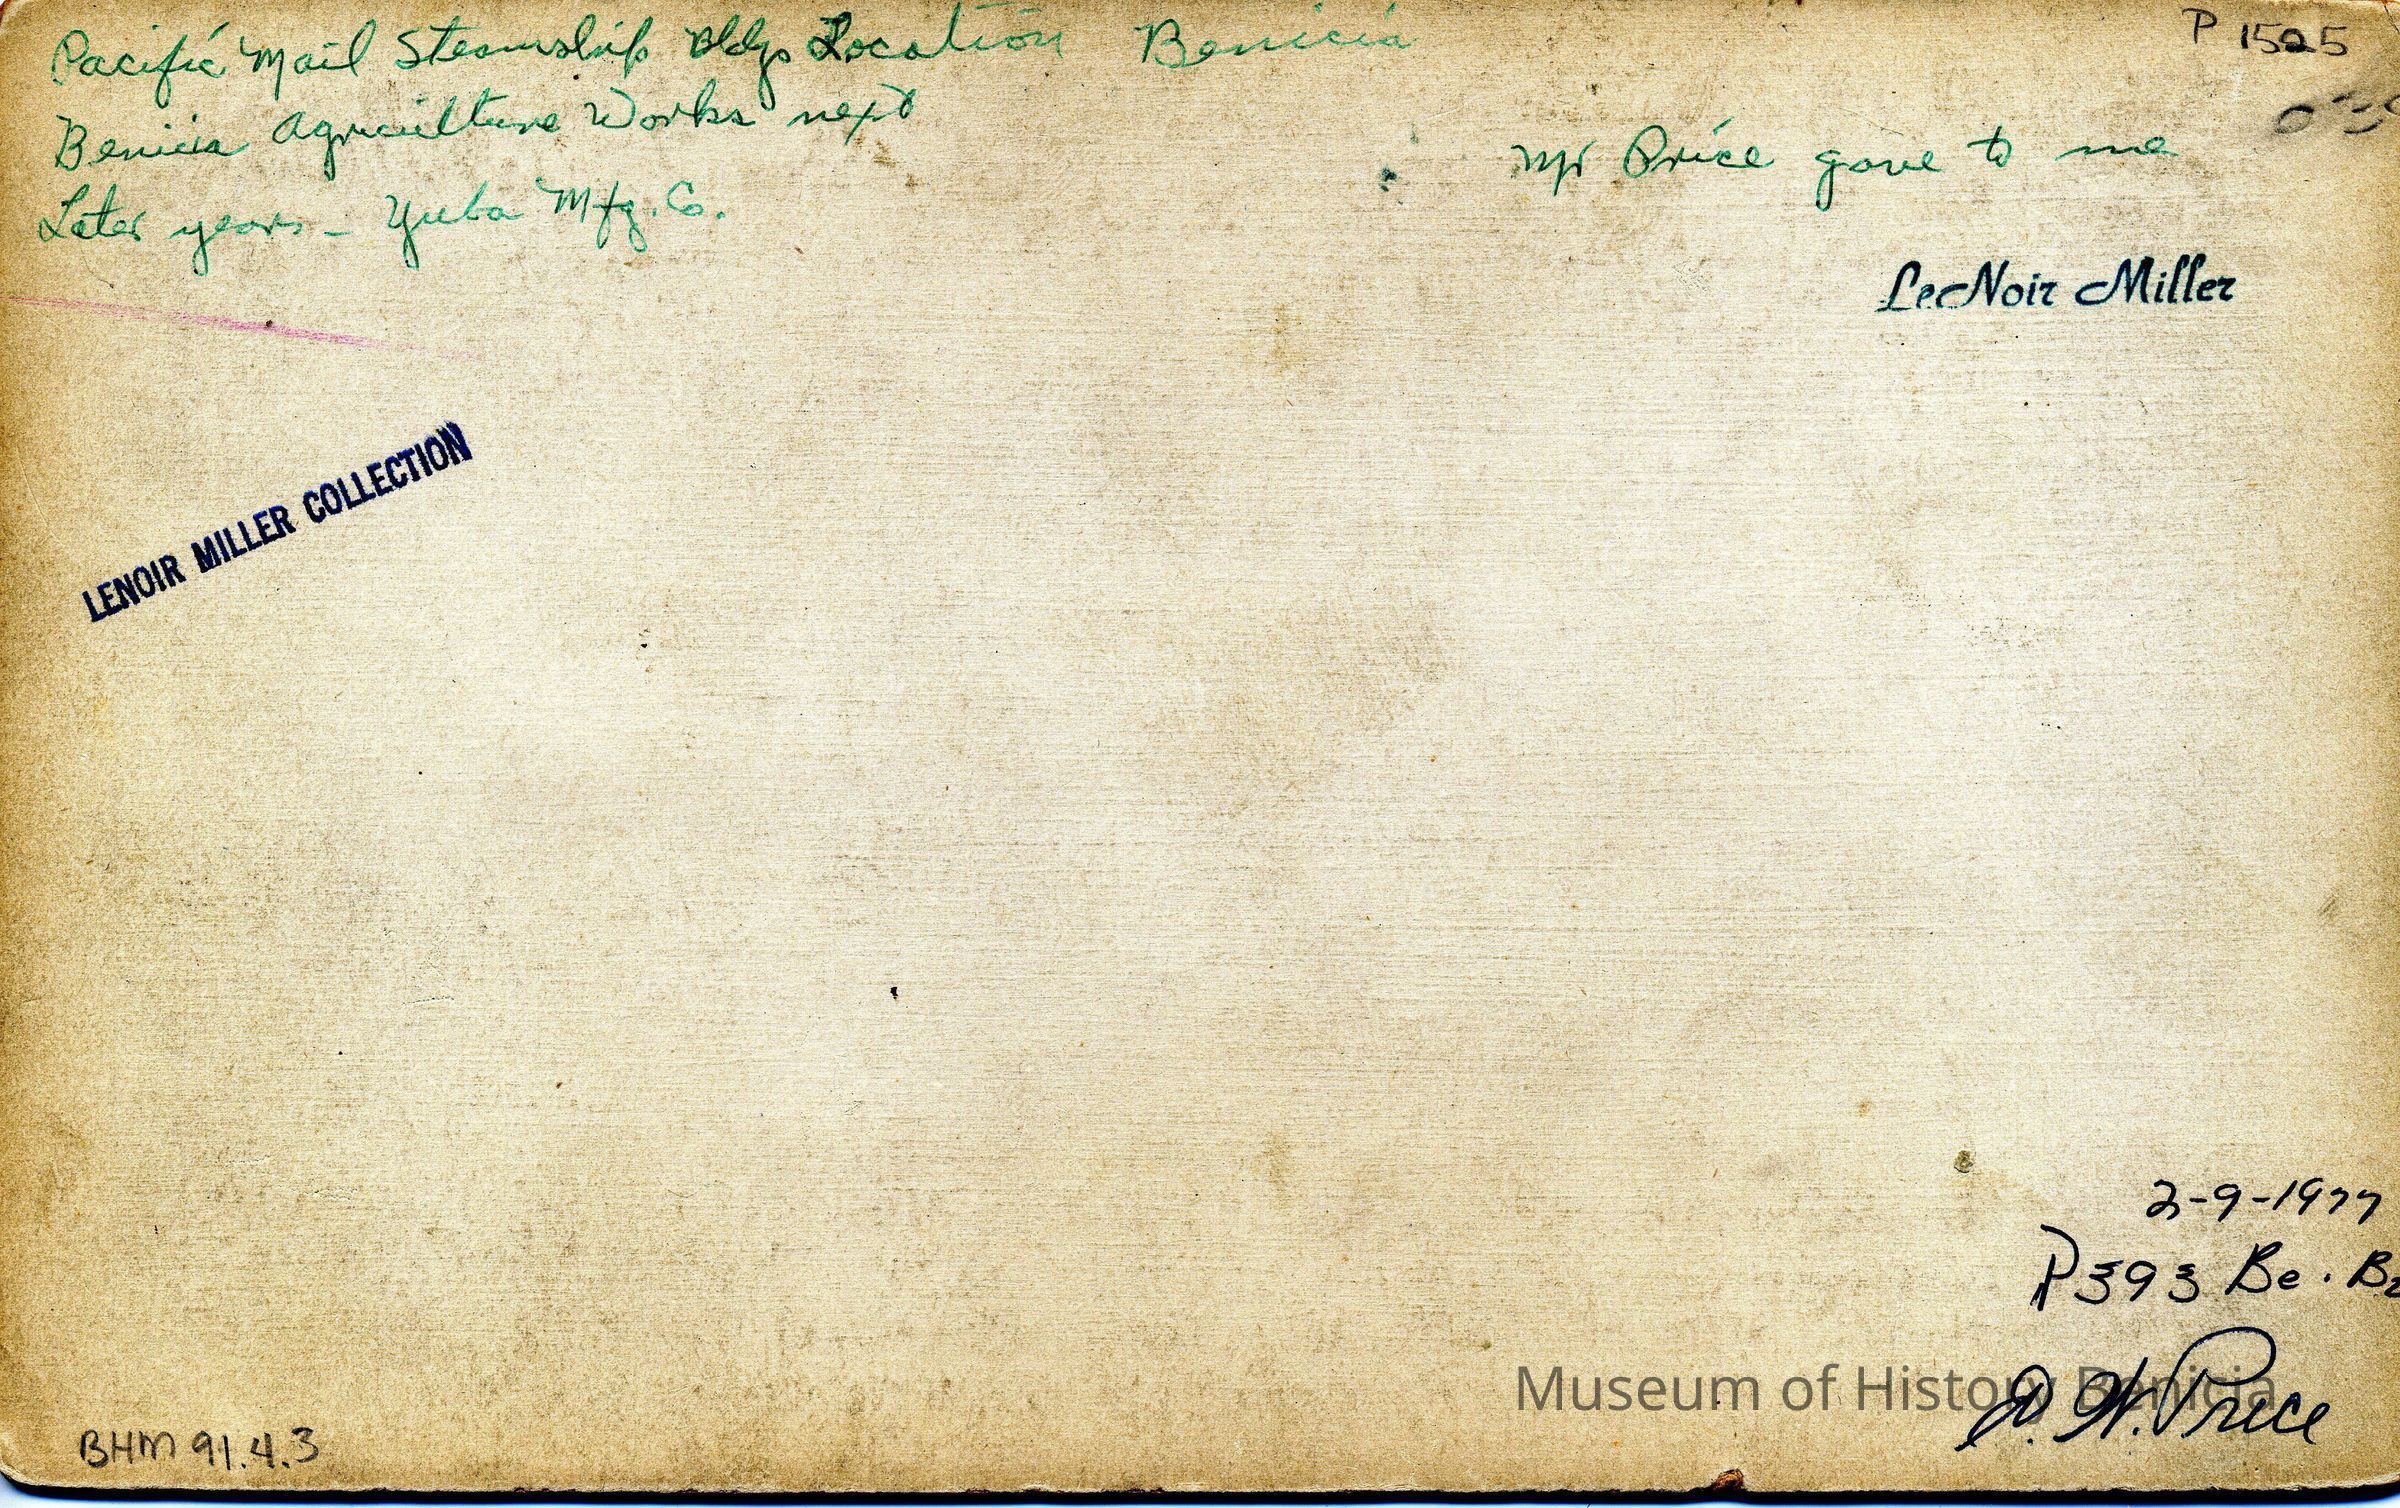 Pacific Mail Steamship Bldgs Location Benicia
P 1525
Benicia Agriculture Works next
Mr Price gave to me
Later years – Yuba Mfg. Co.
LeNoir Miller
LENOIR MILLER COLLECTION
2-9-1977
P393 Be.
Museum of History Benicia
D. W. Price
BHM 91.4.3